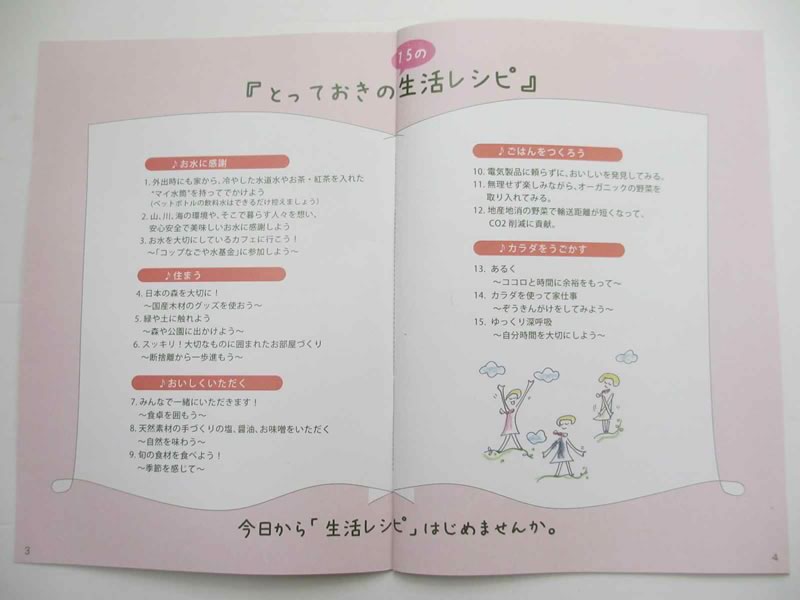 15の
『とっておきの生活レシピ』
♪お水に感謝
1. 外出時にも家から、冷やした水道水やお茶・紅茶を入れた
“マイ水筒”を持ってでかけよう
(ペットボトルの飲料水はできるだけ控えましょう)
2. 山、川、海の環境や、そこで暮らす人々を想い、
安心安全で美味しいお水に感謝しよう
3. お水を大切にしているカフェに行こう!
〜「コップなごや水基金」に参加しよう〜
♪住まう
4. 日本の森を大切に!
〜国産木材のグッズを使おう〜
5. 緑や土に触れよう
〜森や公園に出かけよう〜
6. スッキリ!大切なものに囲まれたお部屋づくり
〜断捨離から一歩進もう〜
♪おいしくいただく
7. みんなで一緒にいただきます!
〜食卓を囲もう〜
8. 天然素材の手づくりの塩、醤油、お味噌をいただく
〜自然を味わう〜
9. 旬の食材を食べよう!
〜季節を感じて〜
♪ごはんをつくろう
10. 電気製品に頼らずに、おいしいを発見してみる。
11. 無理せず楽しみながら、オーガニックの野菜を
取り入れてみる。
12. 地産地消の野菜で輸送距離が短くなって、
CO2 削減に貢献。
♪カラダをうごかす
13. あるく
〜ココロと時間に余裕をもって〜
14. カラダを使って家仕事
〜ぞうきんがけをしてみよう〜
15. ゆっくり深呼吸
〜自分時間を大切にしよう〜
今日から「生活レシピ」はじめませんか。
3
4